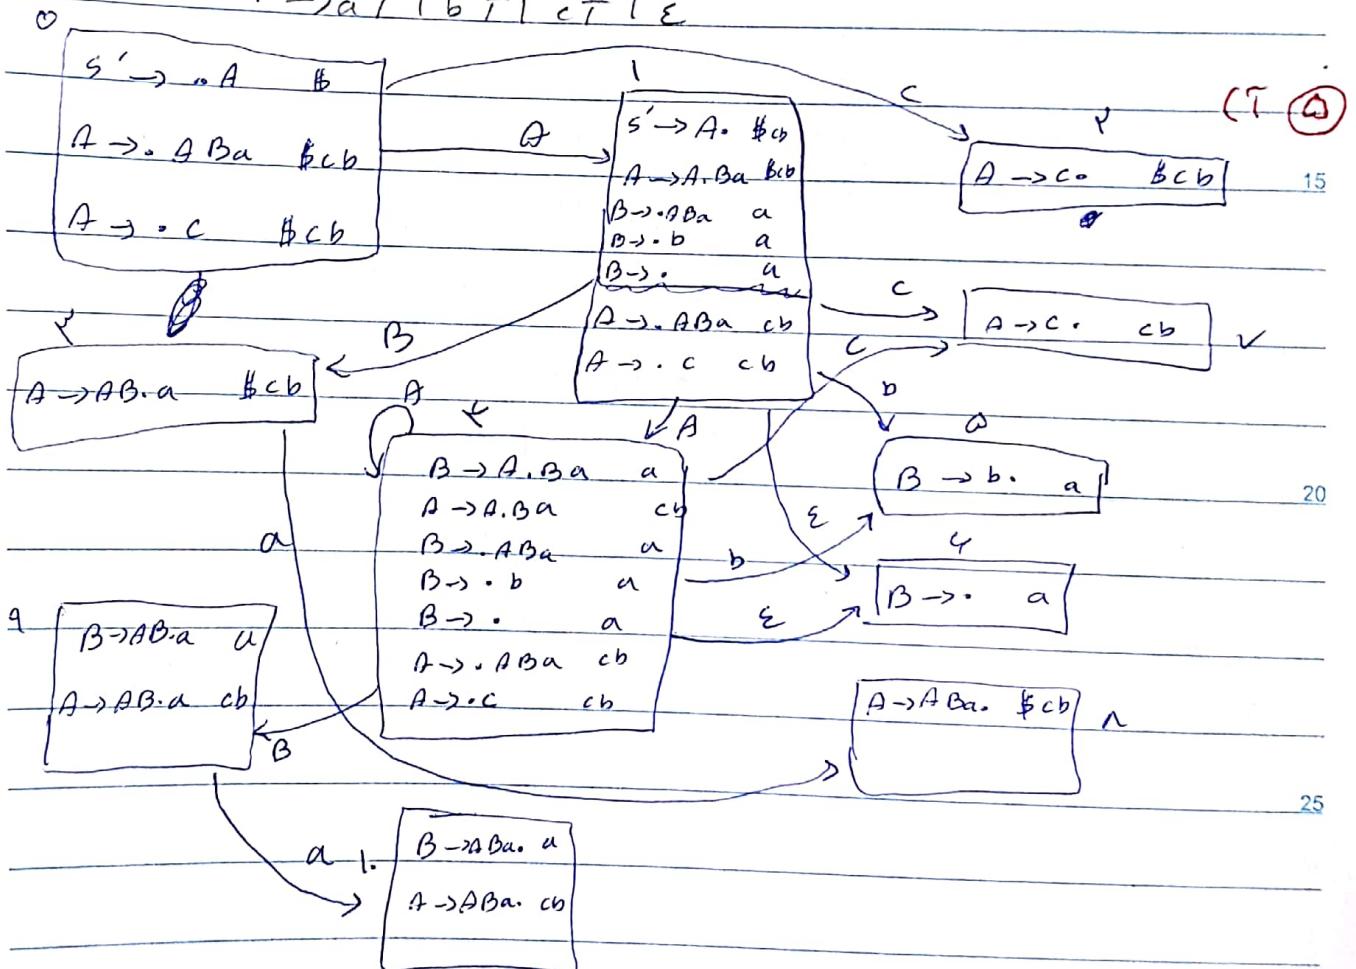 → a T | b T | c T | ε
0
S' → .A $
A → .ABa $cb
A → .c $cb
A
c
1
S' → A. $cb
A → A.Ba $cb
B → .ABa a
B → .b a
B → . a
A → .ABa cb
A → .c cb
۲
A → c. $cb
15
B
A → AB.a $cb
c
A → c. cb
۷
c
b
A
A
۴
B → A.Ba a
A → A.Ba cb
B → .ABa a
B → .b a
B → . a
A → .ABa cb
A → .c cb
۵
B → b. a
20
ε
b
۶
B → . a
ε
a
۹
B → AB.a a
A → AB.a cb
B
A → ABa. $cb
۸
25
a
۱۰
B → ABa. a
A → ABa. cb